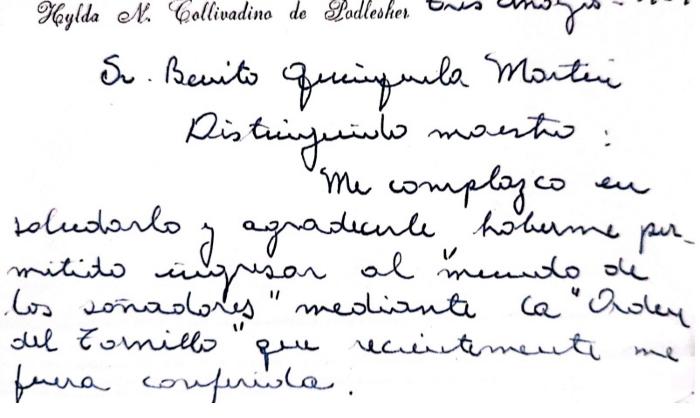 Hylda N. Collivadino de Podlesker
Sr. Benito Quinquela Martin
Distinguido maestro :
Me complazco en
saludarlo y agradecerle haberme per-
mitido ingresar al "mundo de
los soñadores" mediante la "Orden
del Tornillo" que recientemente me
fuera conferida.